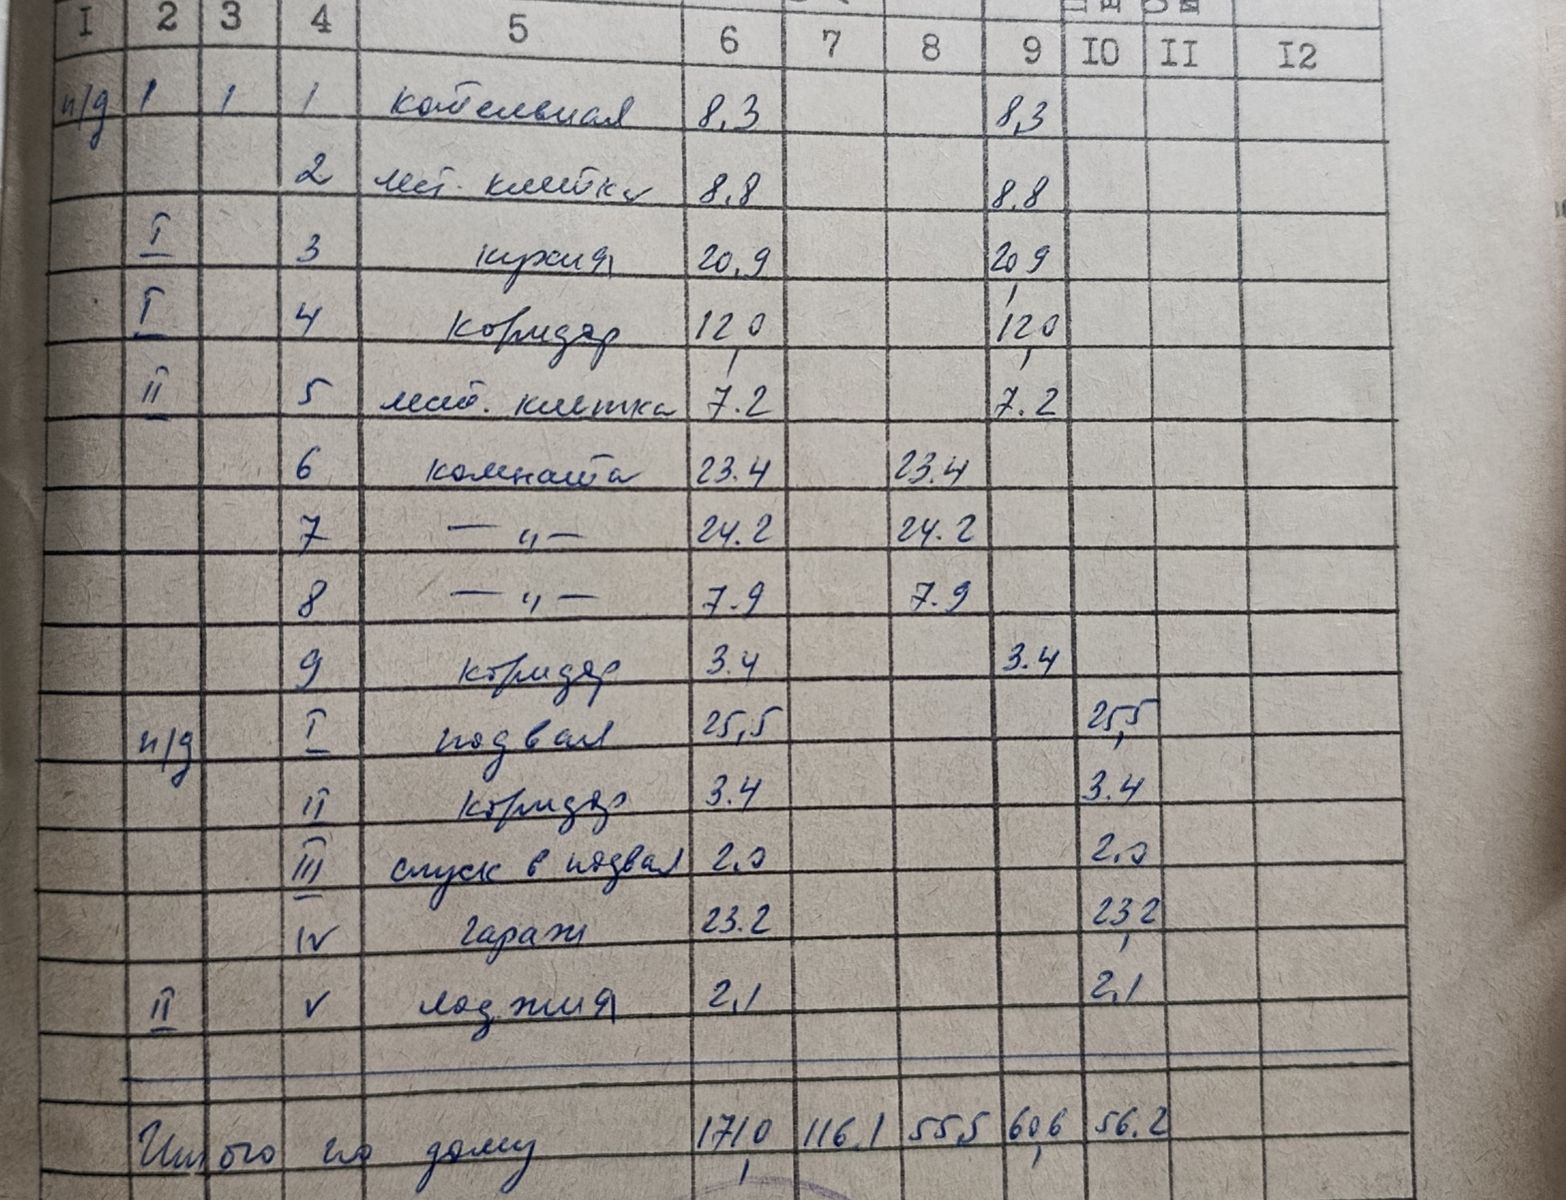 I 2 3 4 5 6 7 8 9 I0 II I2
п/д 1 1 1 котельная 8,3 8,3
2 лест. клетка 8,8 8.8
I 3 кухня 20,9 20,9
I 4 коридор 12,0 12,0
II 5 лест. клетка 7.2 7.2
6 комната 23.4 23.4
7 — „ — 24.2 24.2
8 — „ — 7.9 7.9
9 коридор 3.4 3.4
п/д I подвал 25,5 25,5
II коридор 3.4 3.4
III спуск в подвал 2,0 2,0
IV гараж 23.2 23,2
II V лоджия 2,1 2,1
Итого по дому 171,0 116,1 55,5 60,6 56.2